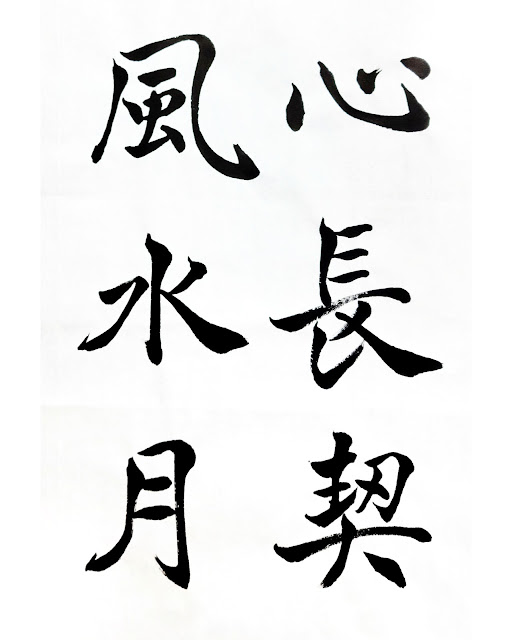 心長契
風水月